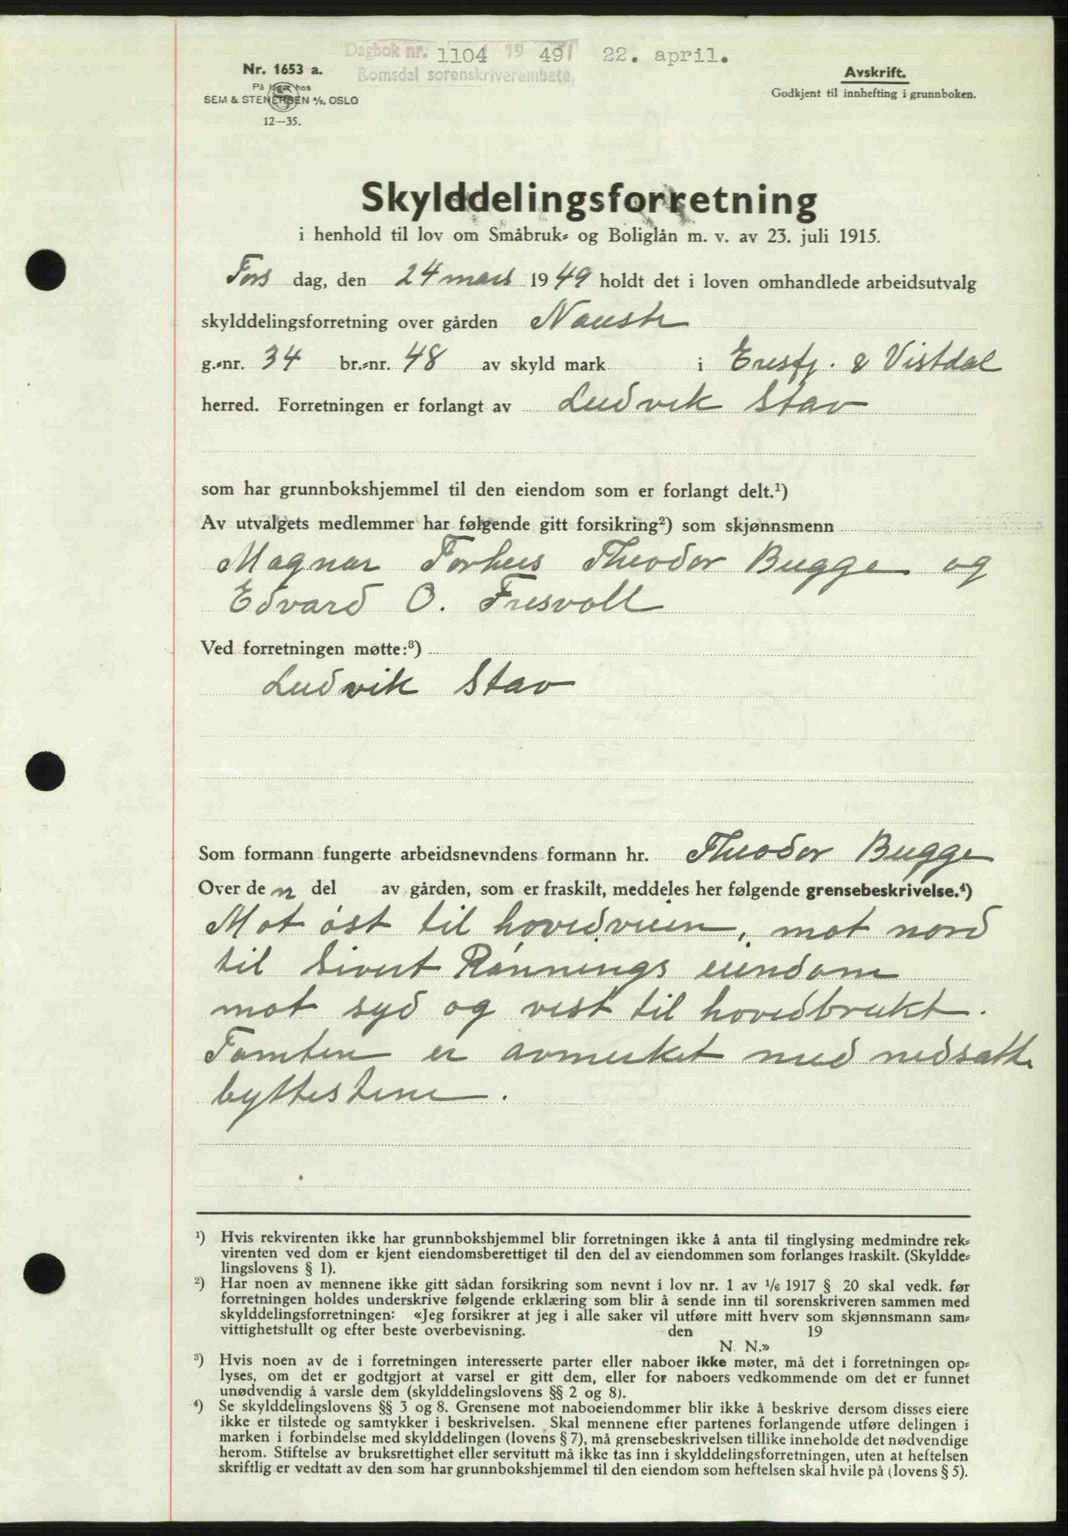 Dagbok nr. 1104 1949 22. april.
Romsdal sorenskriverembete
Nr. 1653 a.
På lager hos
SEM & STENERSEN A/S, OSLO
12—35.
Avskrift.
Godkjent til innhefting i grunnboken.
Skylddelingsforretning
i henhold til lov om Småbruk- og Boliglån m. v. av 23. juli 1915.
Tors dag, den 24 mars 1949 holdt det i loven omhandlede arbeidsutvalg
skylddelingsforretning over gården Nauste
g.-nr. 34 br.-nr. 48 av skyld mark i Eresfj. & Vistdal
herred. Forretningen er forlangt av Ludvik Stav
som har grunnbokshjemmel til den eiendom som er forlangt delt.¹)
Av utvalgets medlemmer har følgende gitt forsikring²) som skjønnsmenn
Magnar Torhus Theodor Bugge og
Edvard O. Fresvoll
Ved forretningen møtte:³)
Ludvik Stav
Som formann fungerte arbeidsnevndens formann hr. Theodor Bugge
Over den del av gården, som er fraskilt, meddeles her følgende grensebeskrivelse.⁴)
Mot øst til hovedveien, mot nord
til Sivert Rønnings eiendom
mot syd og vest til hovedbruket.
Tomten er avmerket med nedsatte
byttestene.
¹) Hvis rekvirenten ikke har grunnbokshjemmel blir forretningen ikke å anta til tinglysing medmindre rek-
virenten ved dom er kjent eiendomsberettiget til den del av eiendommen som forlanges fraskilt. (Skyldde-
lingslovens § 1).
²) Har noen av mennene ikke gitt sådan forsikring som nevnt i lov nr. 1 av 1/6 1917 § 20 skal vedk. før
forretningen holdes underskrive følgende erklæring som blir å sende inn til sorenskriveren sammen med
skylddelingsforretningen: «Jeg forsikrer at jeg i alle saker vil utføre mitt hverv som skjønnsmann sam-
vittighetsfullt og efter beste overbevisning. den 19
N. N.»
³) Hvis noen av de i forretningen interesserte parter eller naboer ikke møter, må det i forretningen op-
lyses, om det er godtgjort at varsel er gitt dem, eller for naboers vedkommende om det er funnet
unødvendig å varsle dem (skylddelingslovens §§ 2 og 8).
⁴) Se skylddelingslovens §§ 3 og 8. Grensene mot naboeiendommer blir ikke å beskrive dersom disses eiere
ikke er tilstede og samtykker i beskrivelsen. Skal mennene efter partenes forlangende utføre delingen i
marken i forbindelse med skylddelingen (lovens § 7), må grensebeskrivelsen tillike inneholde det nødvendige
herom. Stiftelse av bruksrettighet eller servitutt må ikke tas inn i skylddelingsforretningen, uten at heftelsen
skriftlig er vedtatt av den som har grunnbokshjemmel til den eiendom som heftelsen skal hvile på (lovens § 5).